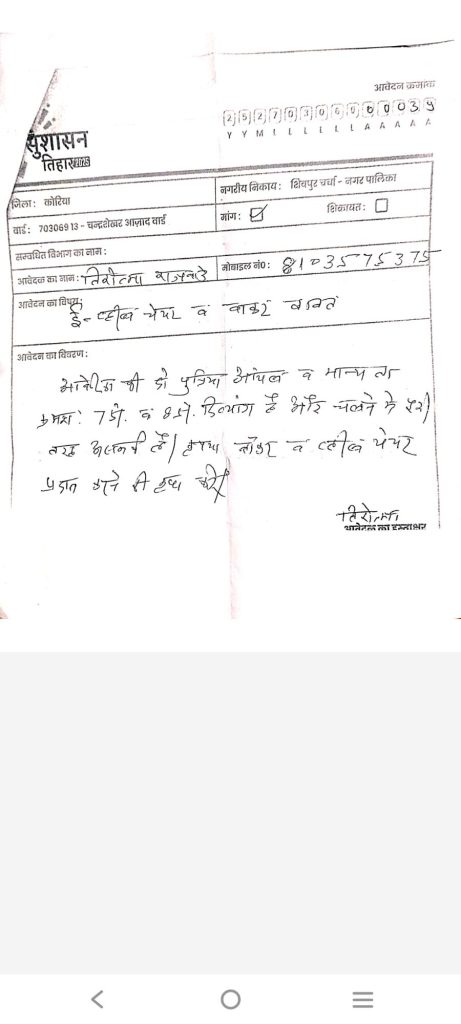 आवेदन क्रमांक
2 5 2 7 0 3 0 6 0 0 0 0 3 9
Y Y M L L L L L L A A A A A
सुशासन
तिहार 2025
जिला: कोरिया
नगरीय निकाय: शिवपुर चर्चा - नगर पालिका
वार्ड: 70306913 - चन्द्रशेखर आज़ाद वार्ड
मांग: ☑ शिकायत: ☐
सम्वधित विभाग का नाम:
आवेदक का नाम: मोबाइल नं०: 8103575375
आवेदन का विषय:
ई-व्हील चेयर व वाकर बाबत
आवेदन का विवरण:
की दो पुत्रिया आंचल व मान्यता
क्रमश: 7 व 8 दिव्यांग है और चलने में पूरी
तरह असमर्थ है। कृपया वॉकर व व्हील चेयर
प्रदान करने की कृपा करें।
आवेदक का हस्ताक्षर